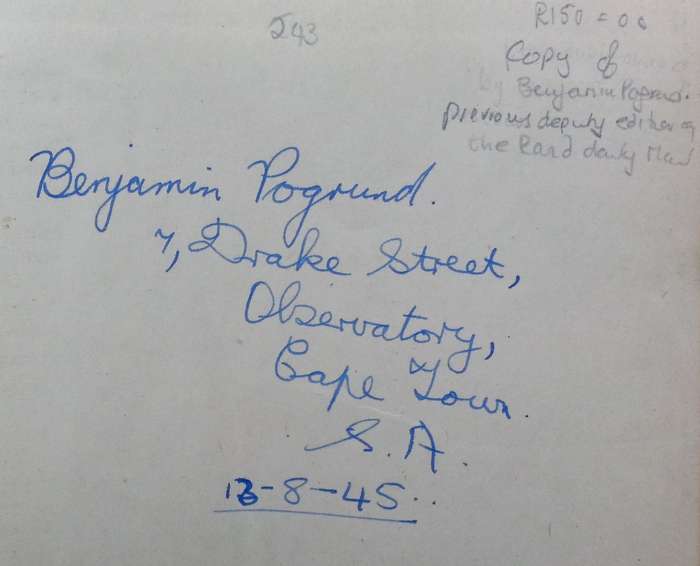 J43
R150 = 00
Copy of
by Benjamin Pogrund.
previous deputy editor of
the Rand daily Mail
Benjamin Pogrund.
7, Drake Street,
Observatory,
Cape Town.
S.A.
13-8-45.